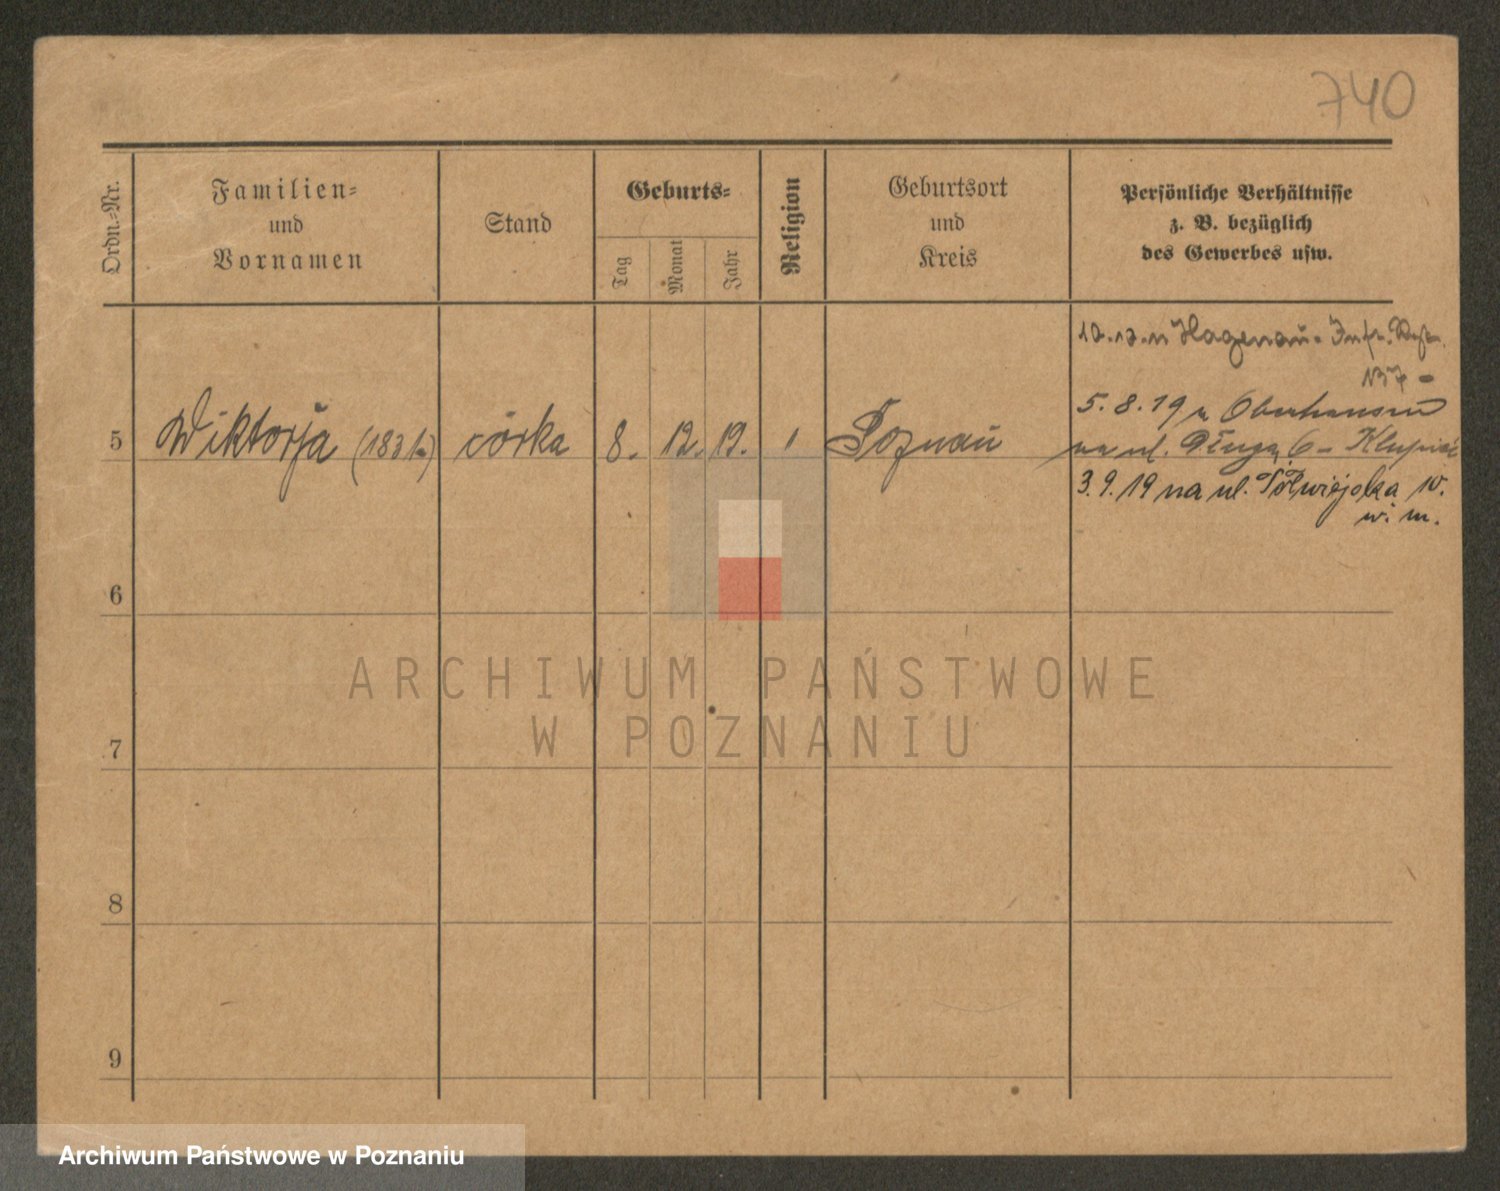 740
Ordn.-Nr.
Familien-
und
Vornamen
Stand
Geburts-
Tag
Monat
Jahr
Religion
Geburtsort
und
Kreis
Persönliche Verhältnisse
z. B. bezüglich
des Gewerbes usw.
Hagenau. Inf.
137 -
5. 8. 19 Oberhausen
5 Wiktorja córka 8. 12. 19. Poznań na ul. Długą 6 -
3. 9. 19 na ul. Półwiejska 10.
w. m.
6
7
8
9
ARCHIWUM PAŃSTWOWE
W POZNANIU
Archiwum Państwowe w Poznaniu